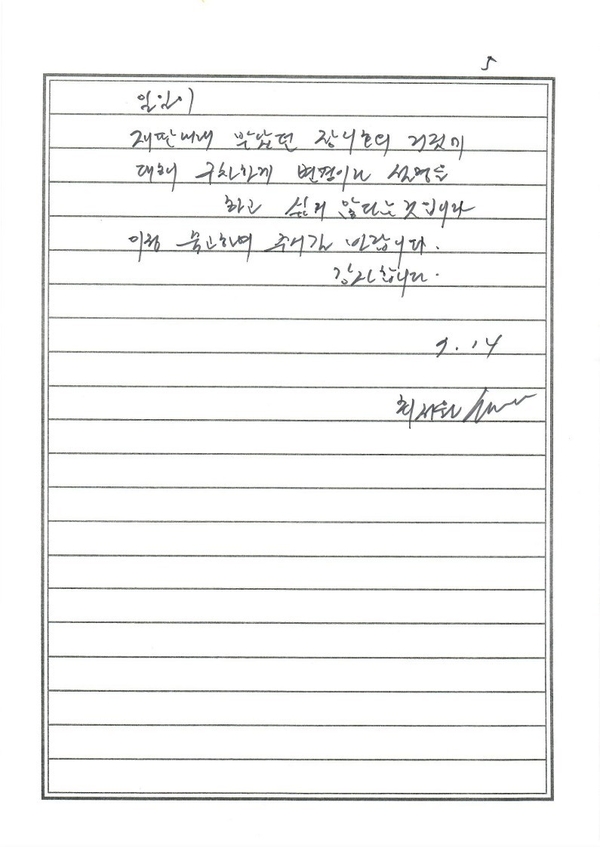 5
일일이
재판내내 받았던 장시호의 거짓에
대해 구차하게 변명이나 설명을
하고 싶지 않다는 것입니다
이점 참고하여 주시길 바랍니다.
감사합니다.
9. 14
최서원